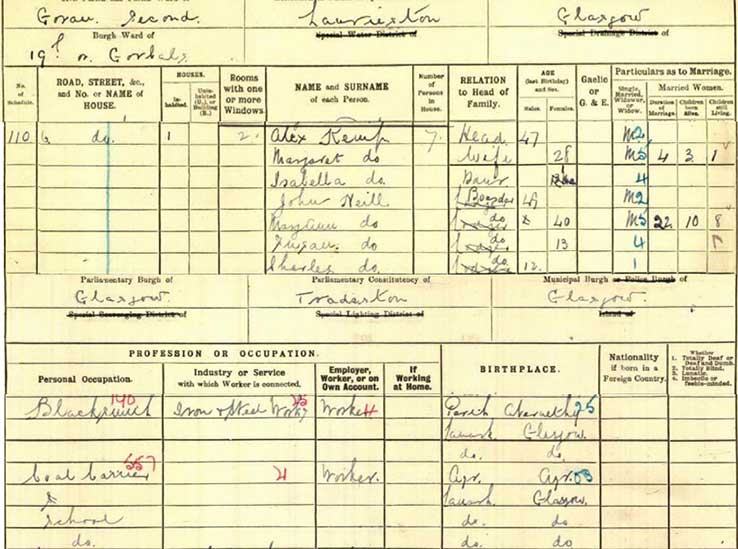 Govan Second. Laurieston Glasgow
Burgh Ward of Special Water District of Special Drainage District of
19 Gorbals
No. of Schedule. ROAD, STREET, &c., and No. or NAME of HOUSE. HOUSES. Inhabited. Uninhabited (U.), or Building (B.) Rooms with one or more Windows NAME and SURNAME of each Person. Number of Persons in House. RELATION to Head of Family. AGE (last Birthday) and Sex. Males. Females. Gaelic or G. & E. Particulars as to Marriage. Single, Married, Widower, or Widow. Married Women. Duration of Marriage. Children born Alive. Children still Living.
110 6 do. 1 2 Alex Kemp 7 Head 47 M2
Margaret do Wife 28 M5 4 3 1
Isabella do. Daur 4
John Neill Boarder 49 M2
Mary Ann do do x 40 M5 22 10 8
Susan do do 13 4
Charles do do. 12. 1
Parliamentary Burgh of Parliamentary Constituency of Municipal Burgh or Police Burgh of
Glasgow. Tradeston Glasgow.
Special Scavenging District of Special Lighting District of Island of
PROFESSION OR OCCUPATION. BIRTHPLACE. Nationality if born in a Foreign Country. Whether 1. Totally Deaf or Deaf and Dumb. 2. Totally Blind. 3. Lunatic. 4. Imbecile or feeble-minded.
Personal Occupation. Industry or Service with which Worker is connected. Employer, Worker, or on Own Account. If Working at Home.
Blacksmith 140 Iron & Steel Works Worker Perth 25
Lanark Glasgow.
do. do.
Coal Carrier 557 4 Worker. Ayr. Ayr. 03
x Lanark Glasgow.
School do do
do. do do.